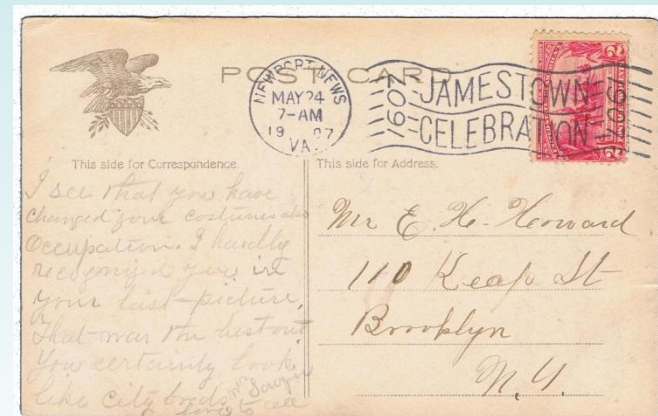 POST CARD
NEWPORT NEWS
MAY 24
7-AM
1907
VA.
1607 JAMESTOWN 1907
CELEBRATION
This side for Correspondence
This side for Address.
I see that you have
changed your costumes also
Occupation. I hardly
recognized you in
your last picture,
That was the best out
You certainly look
like city breds
love to all
Mr E. H. Howard
110 Keap St
Brooklyn
N.Y.